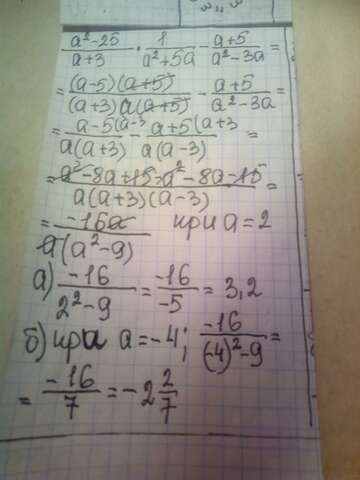 a²-25/a+3 · 1/a²+5a - a+5/a²-3a =
= (a-5)(a+5)/(a+3)a(a+5) - a+5/a²-3a =
= a-5(a-3/a(a+3) - a+5(a+3/a(a-3) =
= a²-8a+15-a²-8a-15/a(a+3)(a-3) =
= -16a/a(a²-9) при a=2
а) -16/2²-9 = -16/-5 = 3,2
б) при a=-4; -16/(-4)²-9 =
= -16/7 = -2 2/7